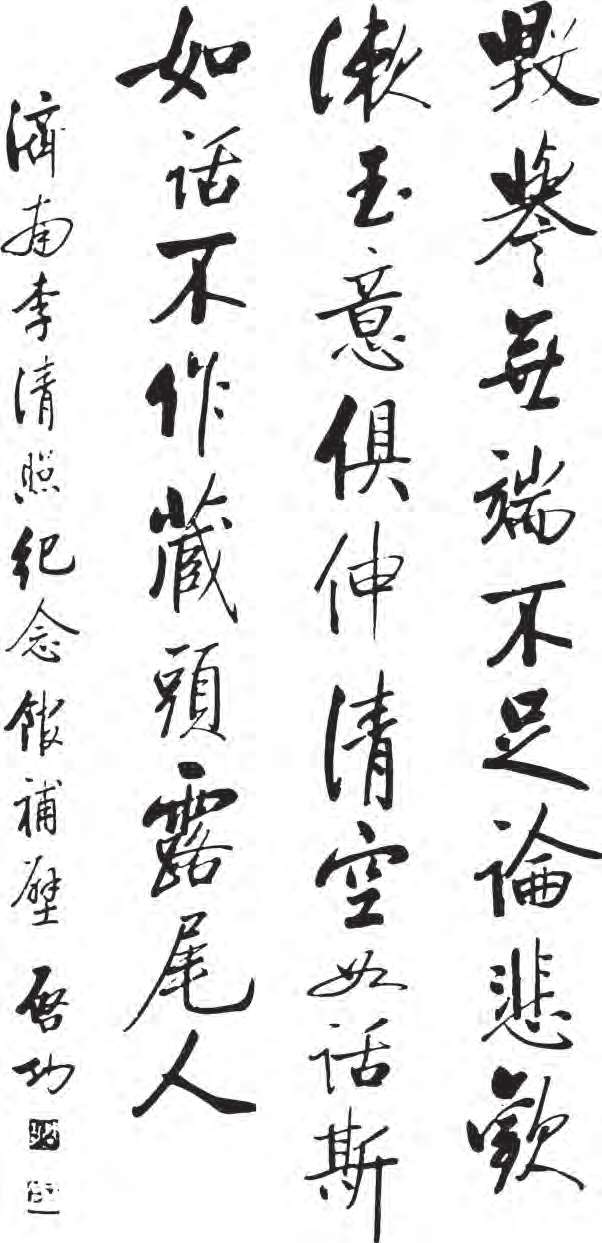 毀譽無端不足論悲歡
漱玉意俱伸清空如話斯
如話不作藏頭露尾人
濟南李清照纪念館補壁 啓功